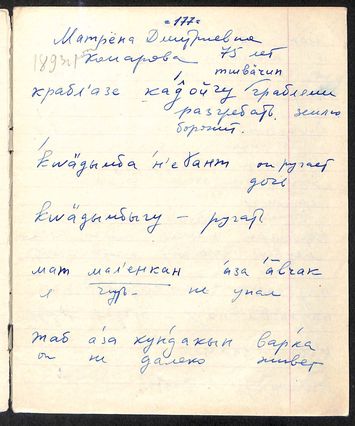 -177-
Матрёна Дмитриевна
1893г. Комарова 75 лет
тивӓчип
крабл'азе ка́д̂ойгу граблями
разгребать землю
боронит.
кwӓдымба н'еват он ругает
дочь
кwӓдымбыгу – ругать
мат мал'енкан а́за а̄́вчак
я чуть не упал
таб а́за кун́дакын ва́рка
он не далеко живет